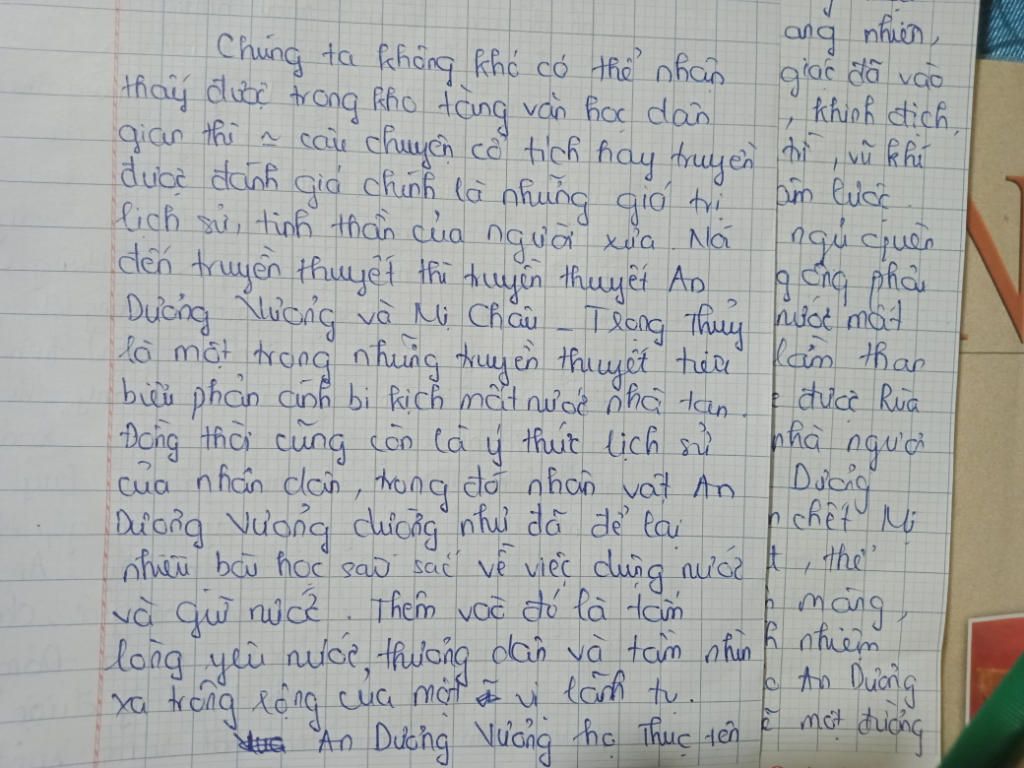 Chúng ta không khó có thể nhận
thấy được trong kho tàng văn học dân
gian thì ~ câu chuyện cổ tích hay truyền
được đánh giá chính là những giá trị
lịch sử, tinh thần của người xưa. Nó
đến truyền thuyết thì truyền thuyết An
Dương Vương và Mị Châu - Trọng Thủy
là một trong những truyền thuyết tiêu
biểu phản ánh bi kịch mất nước nhà tan.
Đồng thời cũng còn là ý thức lịch sử
của nhân dân, trong đó nhân vật An
Dương Vương dường như đã để lại
nhiều bài học sâu sắc về việc dựng nước
và giữ nước. Thêm vào đó là tấm
lòng yêu nước, thương dân và tầm nhìn
xa trông rộng của một vị lãnh tụ.
An Dương Vương họ Thục tên
ang nhiên,
giặc đã vào
, khinh địch,
trì, vũ khí
âm lược.
ngủ quên
gông phải
nước mất
lầm than
được Rùa
nhà ngươi
Dương
chết Mị
t, thể
màng,
h nhiệm
An Dương
một đường